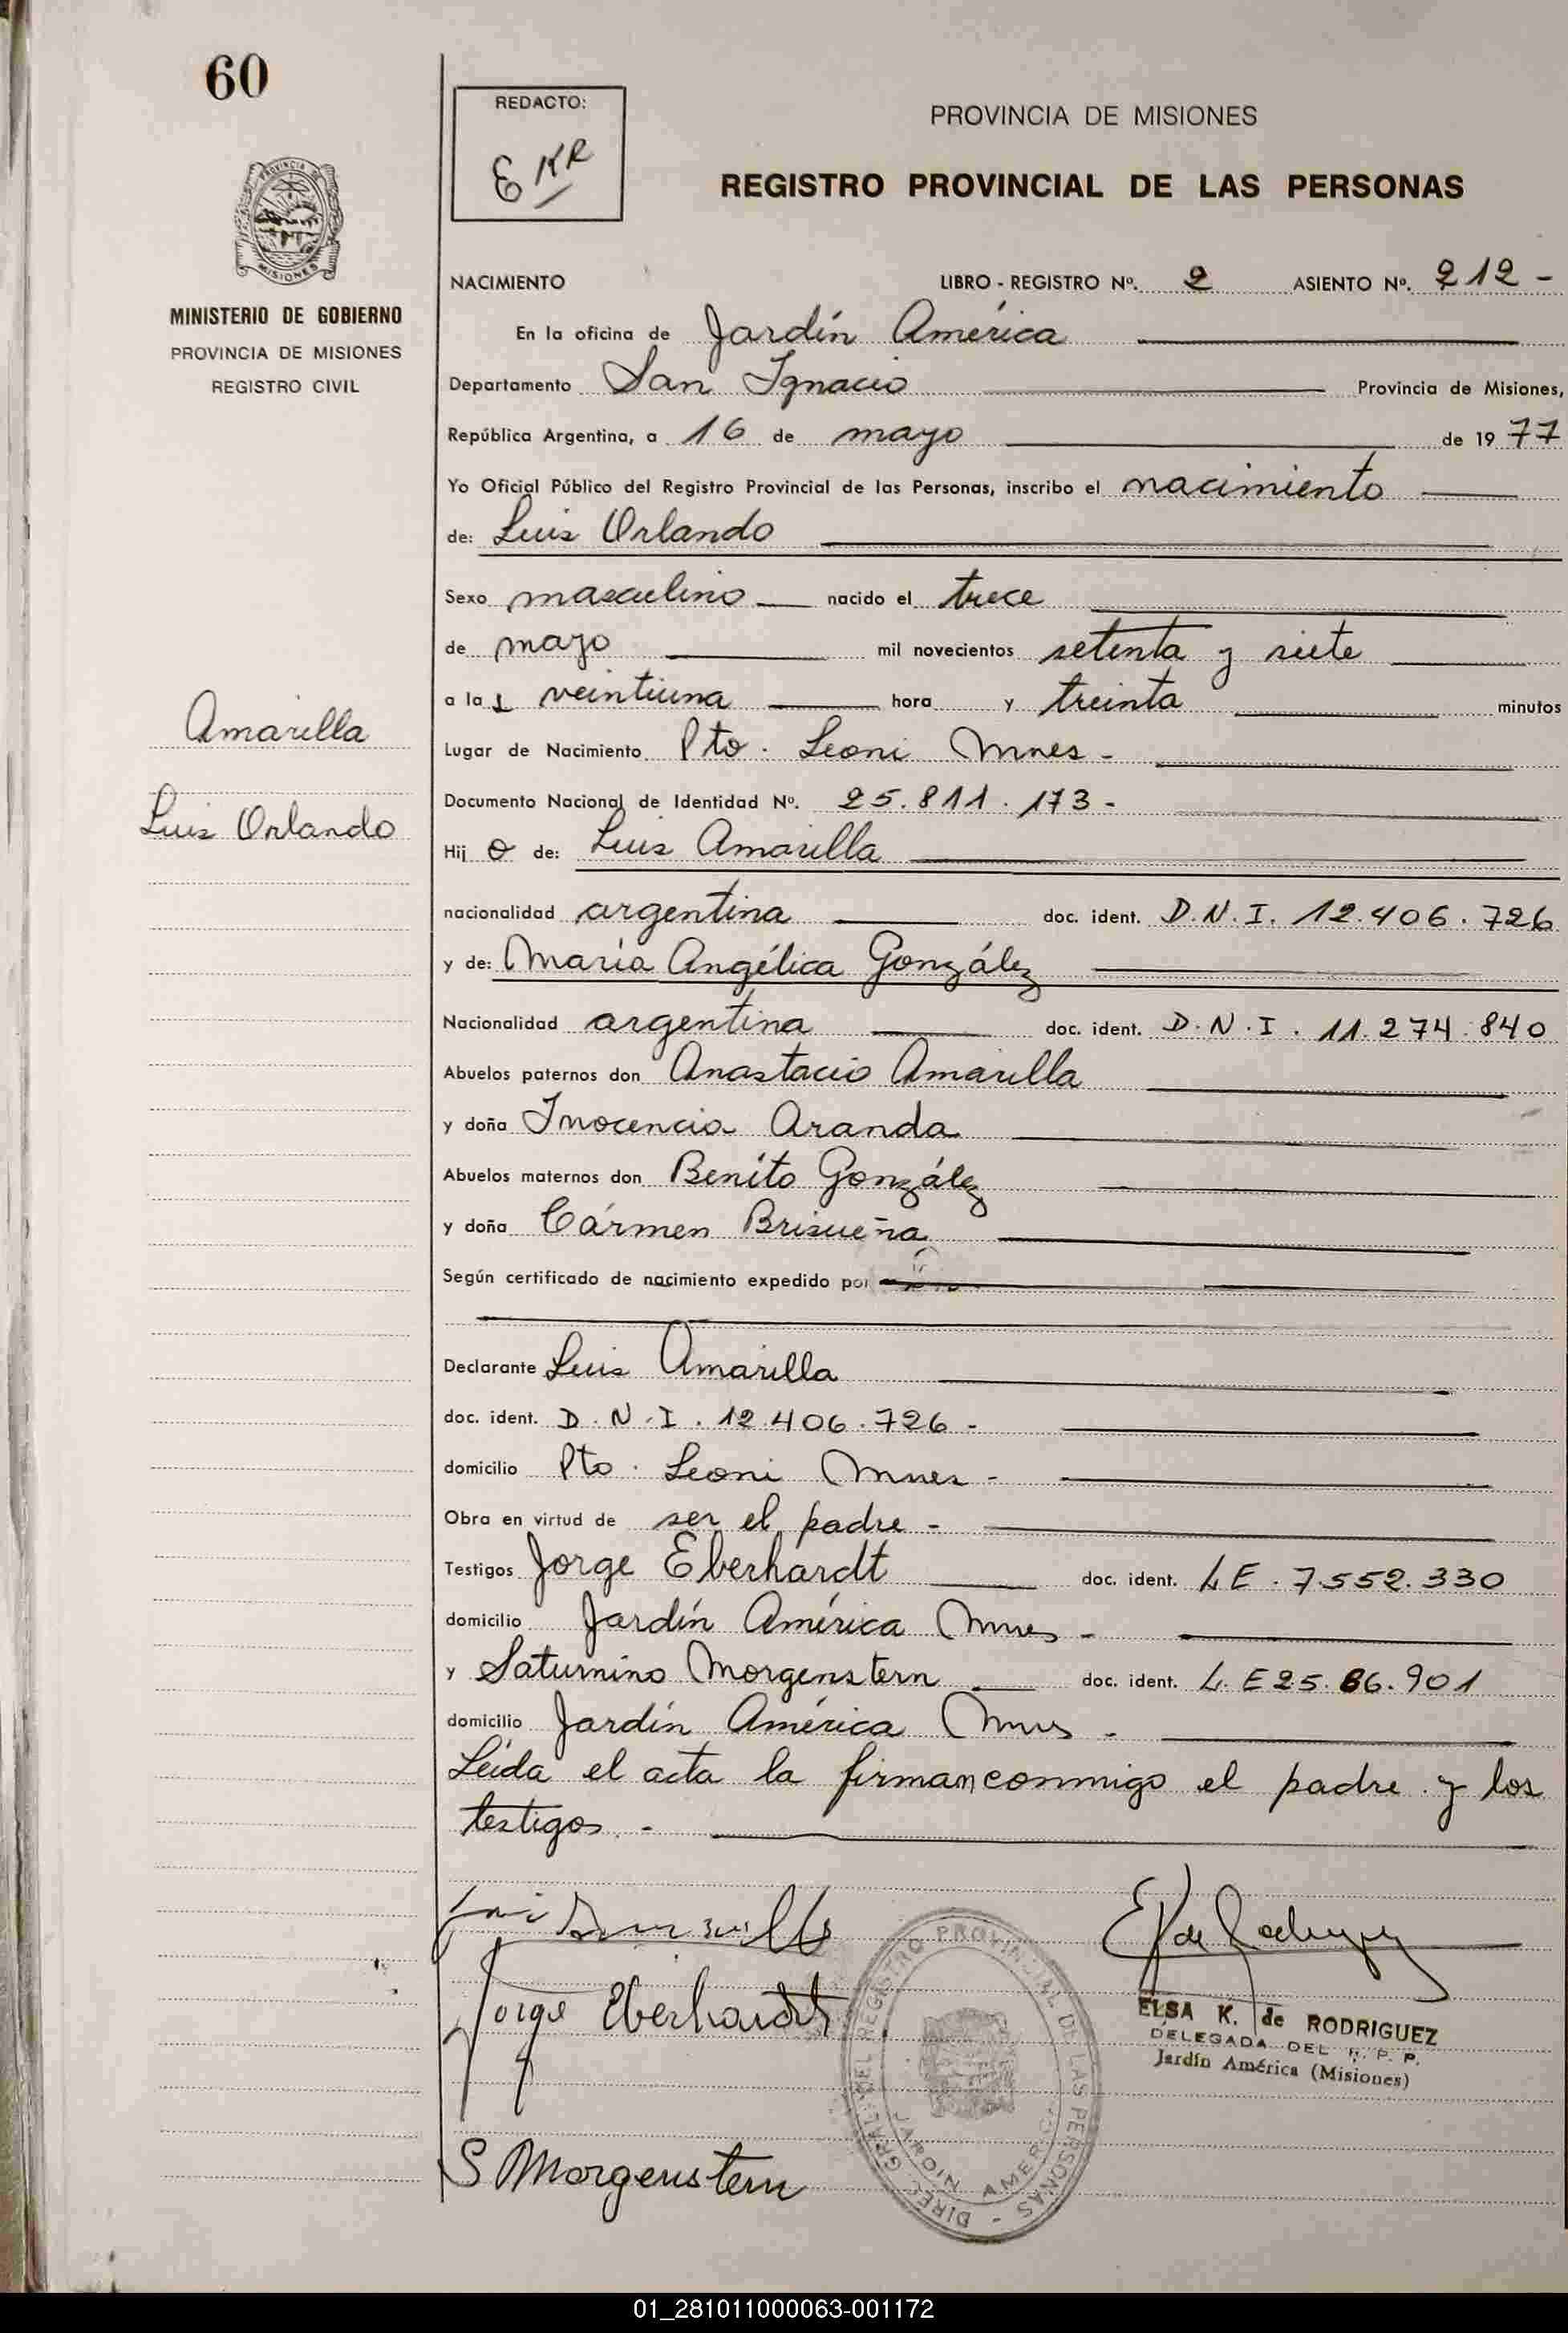 60
REDACTO:
EKR
PROVINCIA DE MISIONES
REGISTRO PROVINCIAL DE LAS PERSONAS
PROVINCIA DE
MISIONES
MINISTERIO DE GOBIERNO
PROVINCIA DE MISIONES
REGISTRO CIVIL
Amarilla
Luis Orlando
NACIMIENTO LIBRO - REGISTRO Nº. 2 ASIENTO Nº. 212 -
En la oficina de Jardín América
Departamento San Ignacio Provincia de Misiones,
República Argentina, a 16 de mayo de 19 77
Yo Oficial Público del Registro Provincial de las Personas, inscribo el nacimiento
de: Luis Orlando
Sexo masculino nacido el trece
de mayo mil novecientos setenta y siete
a las veintiuna hora y treinta minutos
Lugar de Nacimiento Pto. Leoni Mnes -
Documento Nacional de Identidad Nº. 25.811.173 -
Hij o de: Luis Amarilla
nacionalidad argentina doc. ident. D.N.I. 12.406.726
y de: María Angélica González
Nacionalidad argentina doc. ident. D.N.I. 11.274.840
Abuelos paternos don Anastacio Amarilla
y doña Inocencia Aranda
Abuelos maternos don Benito González
y doña Cármen Brisueña
Según certificado de nacimiento expedido por
Declarante Luis Amarilla
doc. ident. D.N.I. 12.406.726 -
domicilio Pto. Leoni Mnes -
Obra en virtud de ser el padre -
Testigos Jorge Eberhardt doc. ident. L E. 7.552.330
domicilio Jardín América Mnes -
y Saturnino Morgenstern doc. ident. L. E 25.86.901
domicilio Jardín América Mnes -
Leída el acta la firman conmigo el padre y los
testigos. -
Luis Amarilla
E K de Rodriguez
Jorge Eberhardt
ELSA K. de RODRIGUEZ
DELEGADA DEL R. P. P.
Jardín América (Misiones)
DIREC. GRAL. DEL REGISTRO PROVINCIAL DE LAS PERSONAS -
JARDIN AMERICA
S Morgenstern
01_281011000063-001172